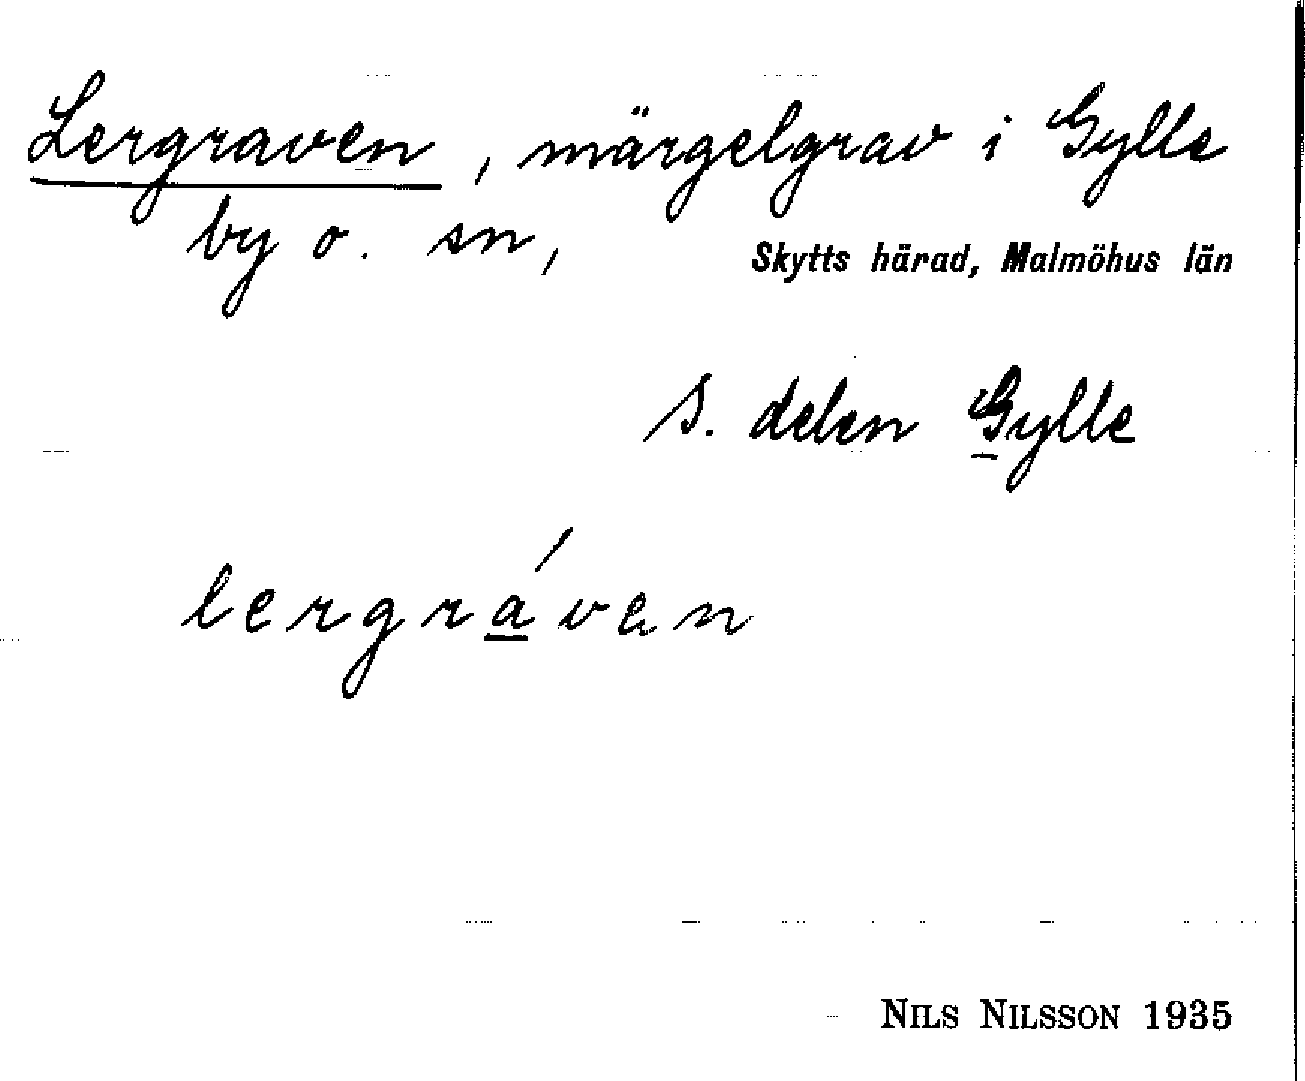 Lergraven, märgelgrav i Gylle
by o. sn,
Skytts härad, Malmöhus län
S. delen Gylle
lergráven
NILS NILSSON 1935